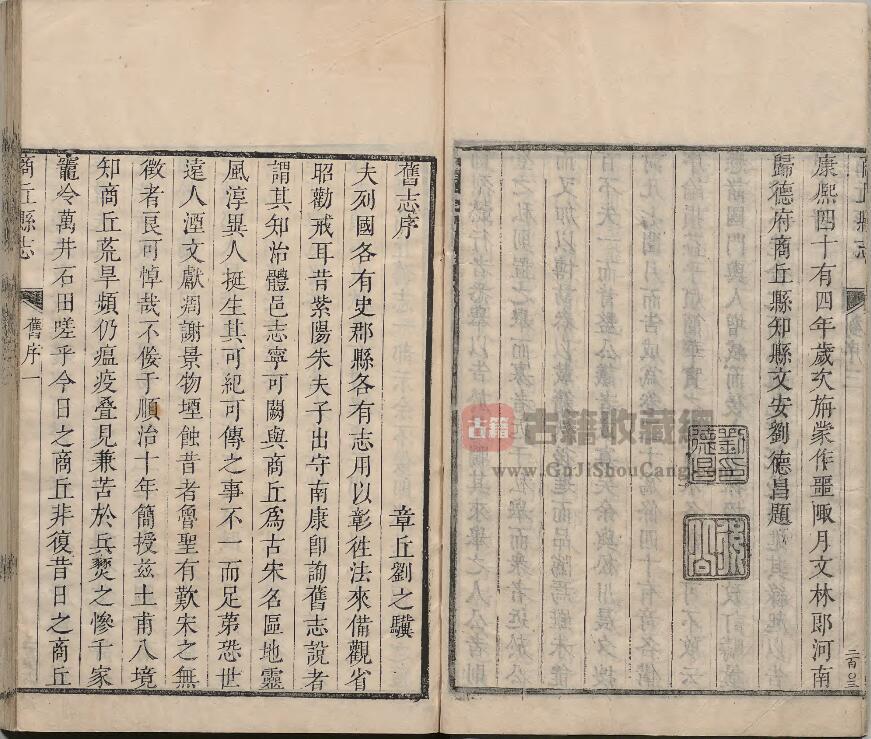 康熙四十有四年歲次旃蒙作噩陬月文林郎河南
歸德府商丘縣知縣文安劉德昌題
劉德昌印
二百〇三
舊志序
章丘劉之驥
夫列國各有史郡縣各有志用以彰徃法來備觀省
昭勸戒耳昔紫陽朱夫子出守南康卽詢舊志説者
謂其知治體邑志寧可闕與商丘爲古宋名區地靈
風淳異人挺生其可紀可傳之事不一而足第恐世
遠人湮文獻凋謝景物堙蝕昔者魯聖有歎宋之無
徴者良可悼哉不佞于順治十年簡授兹土甫八境
知商丘荒旱頻仍瘟疫叠見兼苦於兵燹之慘千家
竈冷萬井石田嗟乎今日之商丘非復昔日之商丘
商丘縣志
舊序
一
古籍
古籍收藏網
www.GuJiShouCang.com